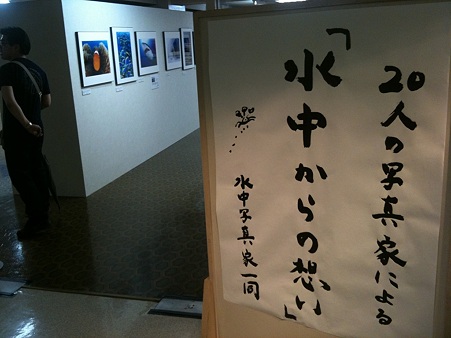 20人の写真家による
「水中からの想い」
水中写真家一同